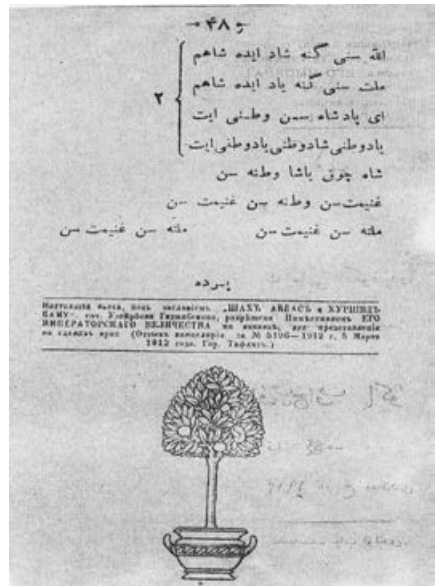 — ۴۸ —
الله سنی گنه شاد ایده شاهم
ملت سنی گنه یاد ایده شاهم
۲
ای پادشاه سن وطنی ایت
یادوطنی شادوطنی یادوطنی ایت
شاه چوق یاشا وطنه سن
غنیمت سن وطنه سن غنیمت سن
ملته سن غنیمت سن ملته سن غنیمت سن
پرده
Настоящая пьеса, подъ заглавіемъ „ШАХЪ АББАСЪ и ХУРШИДЪ
БАНУ“ соч. Узеирбека Гаджибекова, разрѣшена Намѣстникомъ ЕГО
ИМПЕРАТОРСКАГО ВЕЛИЧЕСТВА на Кавказѣ, для представленія
на сценахъ края (Отзывъ канцеляріи за № 5196—1912 г. 5 Марта
1912 года. Гор. Тифлисъ.)